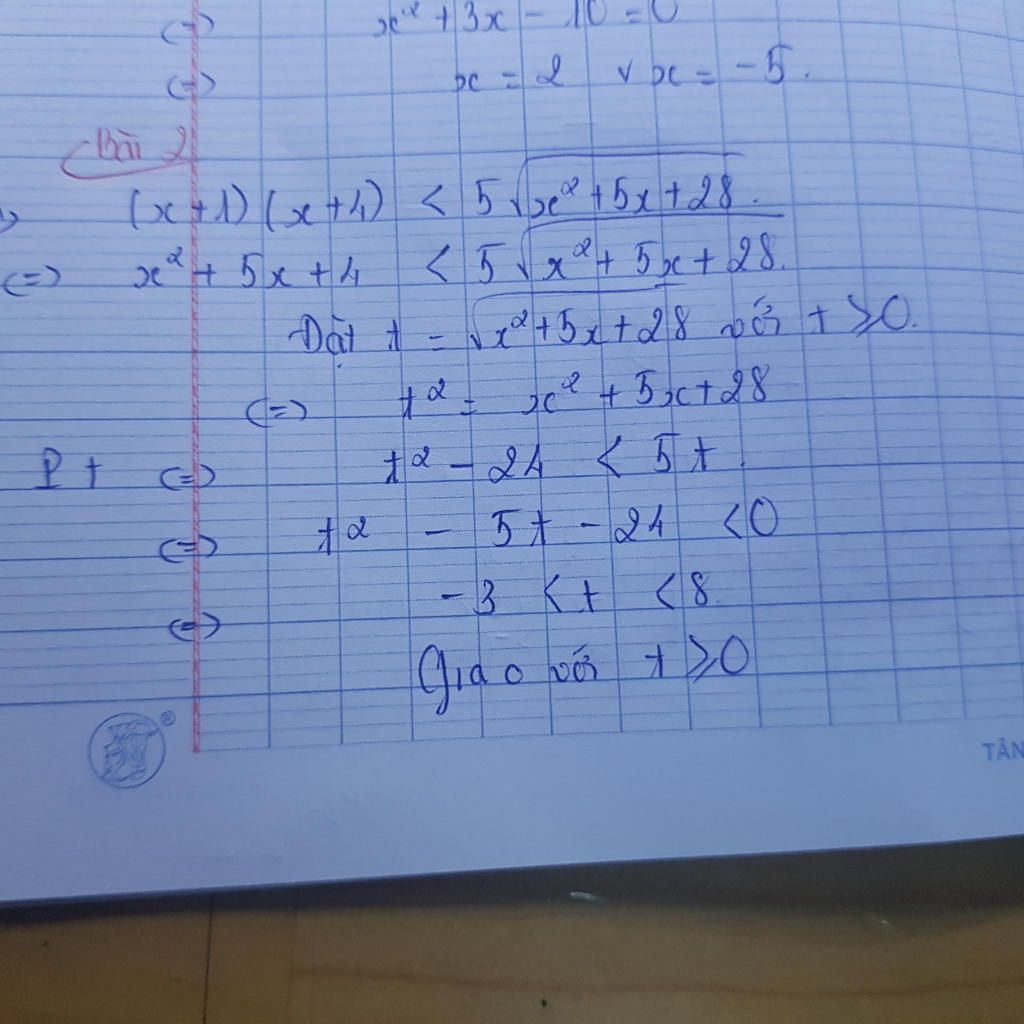 (=) x² + 3x - 10 = 0
(=) x = 2 v x = -5.
Bài 2
(x+1)(x+4) < 5√x²+5x+28.
(=) x² + 5x + 4 < 5√x² + 5x + 28.
Đặt t = √x²+5x+28 với t ⩾ 0.
(=) t² = x² + 5x+28
Pt (=) t² - 24 < 5t
(=) t² - 5t - 24 < 0
(=) -3 < t < 8
Giao với t ⩾ 0
®
TÂN